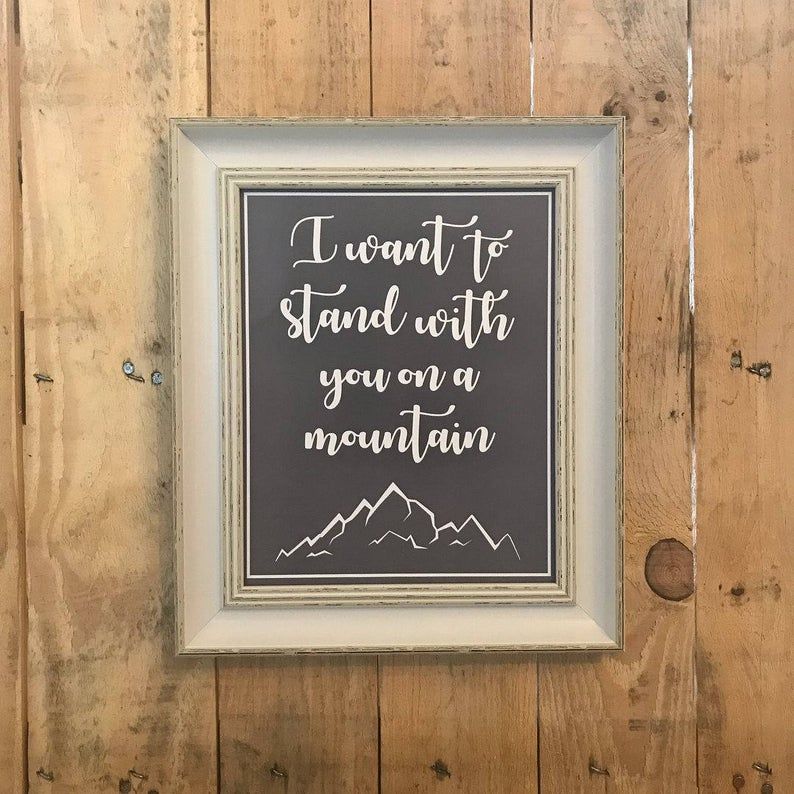 I want to
stand with
you on a
mountain